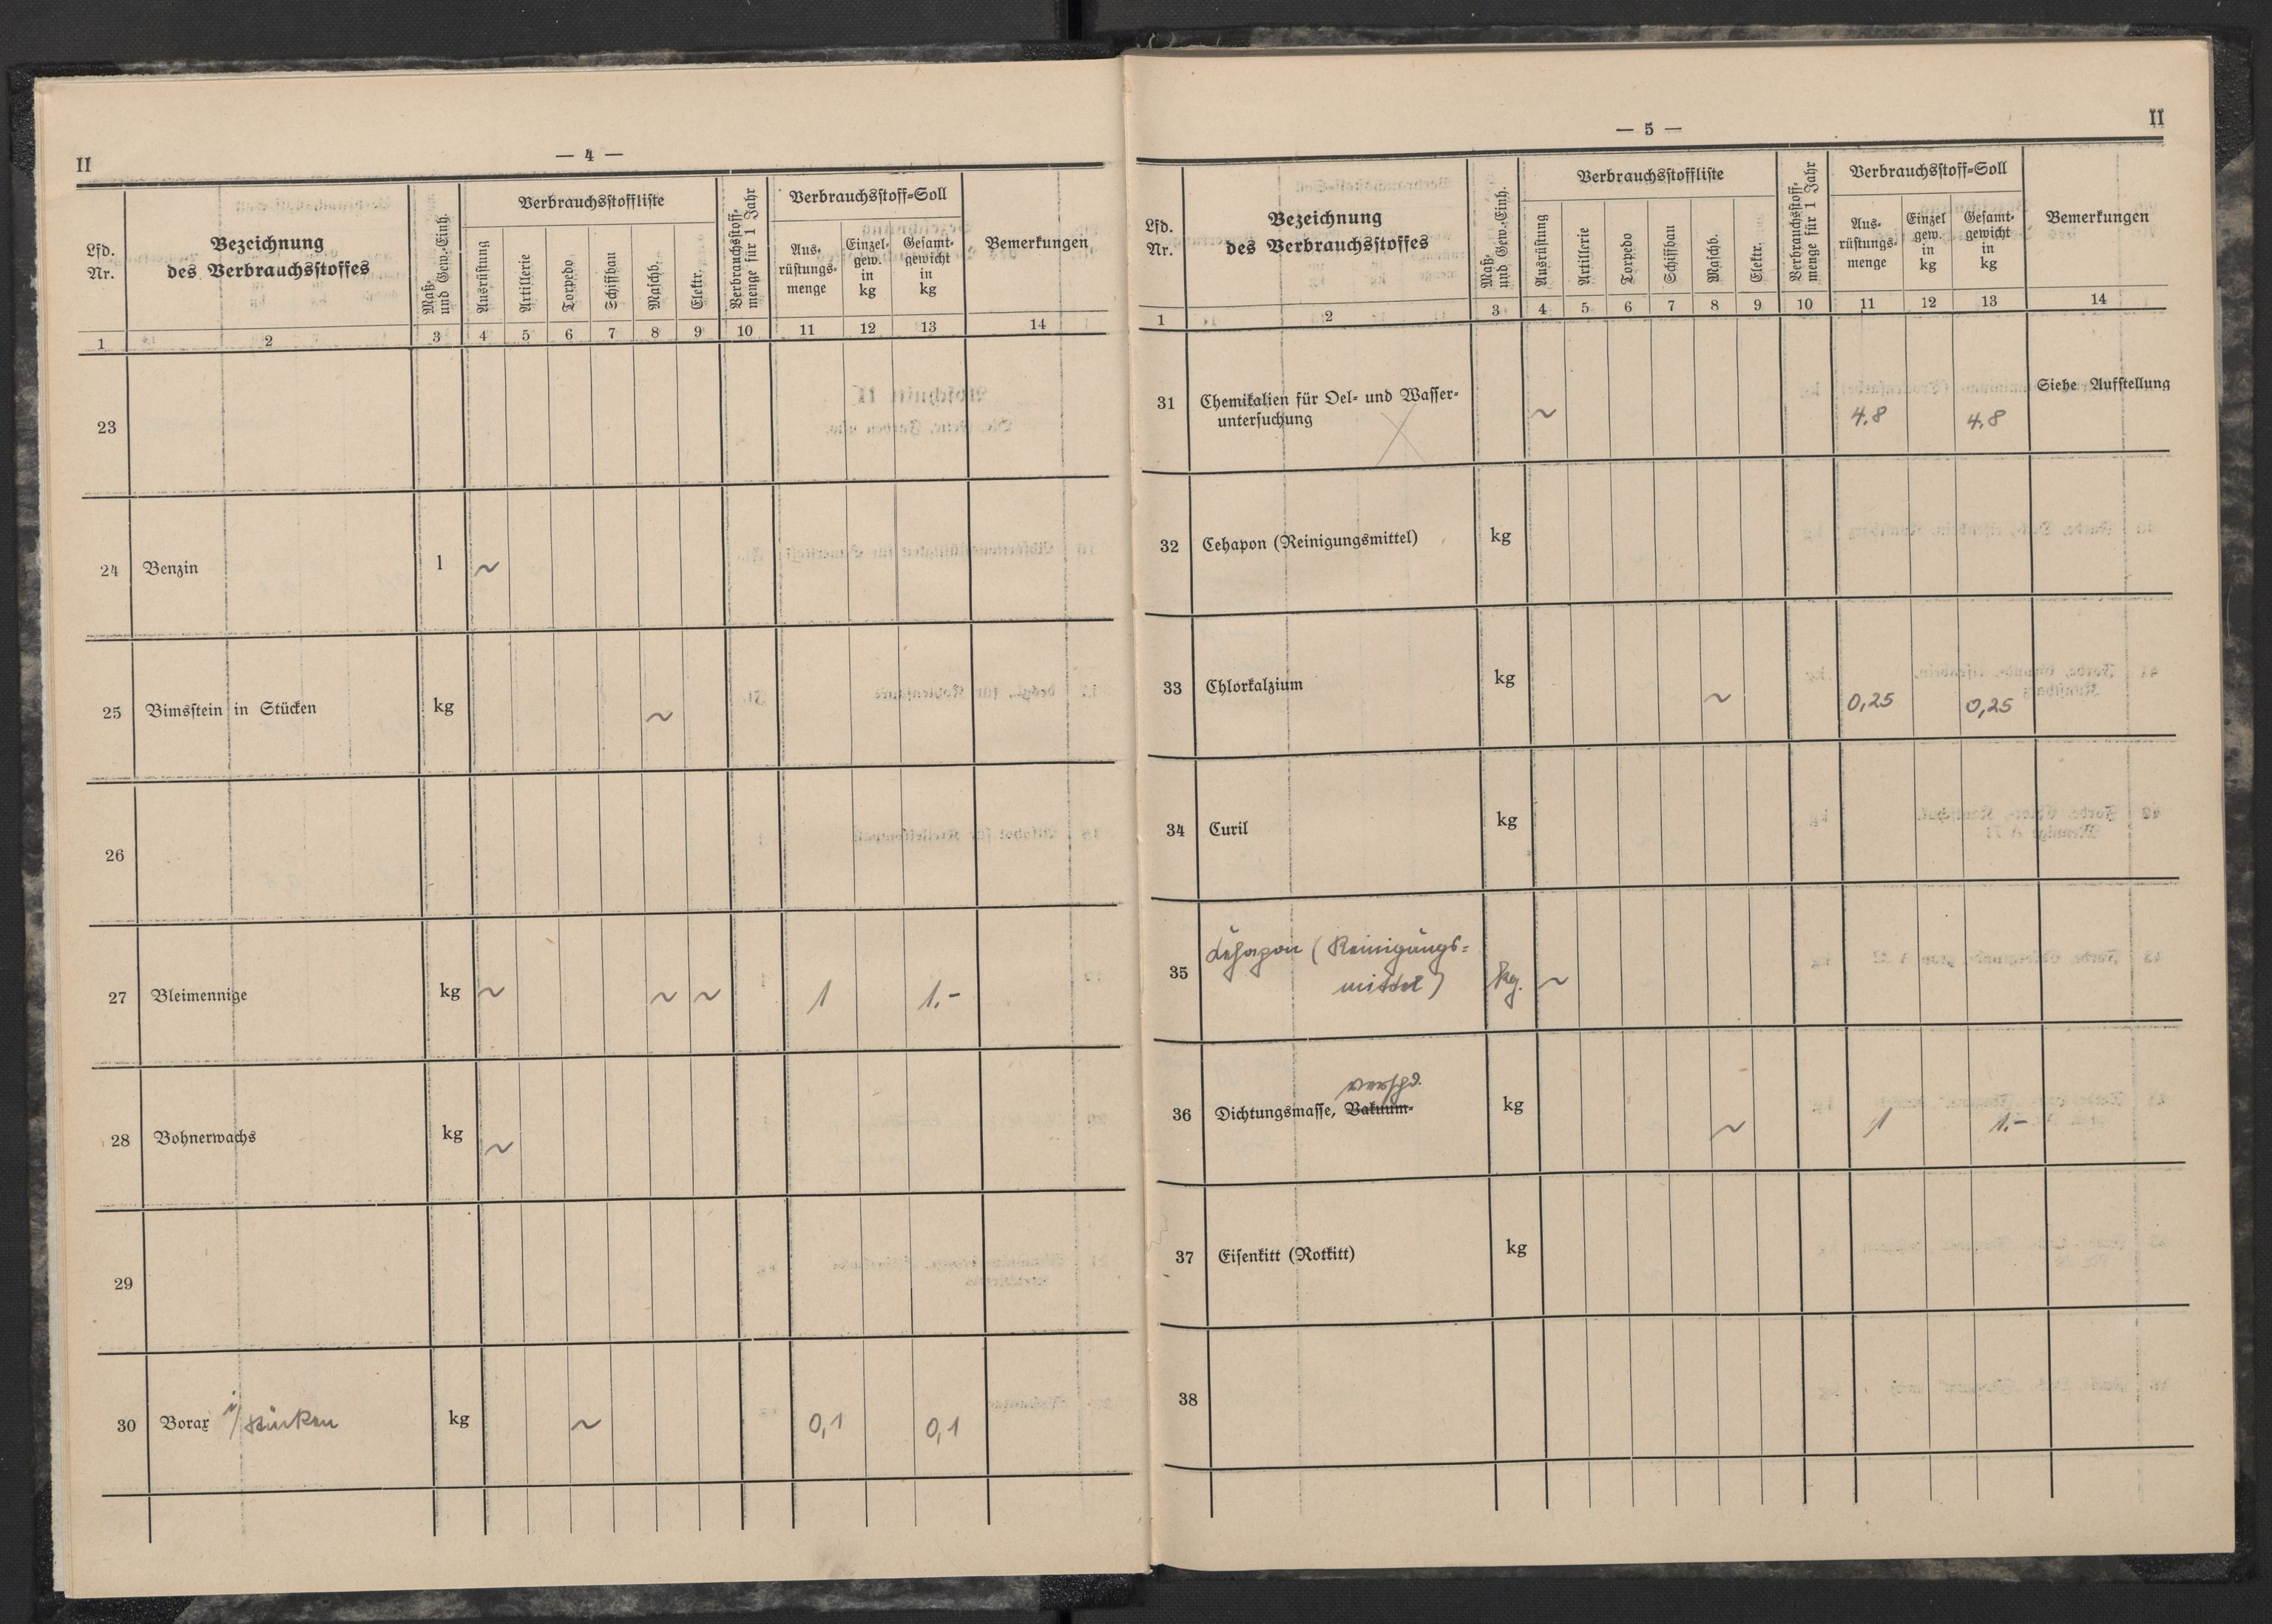 II
— 4 —
Lfd. Nr.
Bezeichnung
des Verbrauchsstoffes
Maß- und Gew.-Einh.
Verbrauchsstoffliste
Ausrüstung
Artillerie
Torpedo
Schiffbau
Maschb.
Elektr.
Verbrauchsstoff-
menge für 1 Jahr
Verbrauchsstoff-Soll
Aus-
rüstungs-
menge
Einzel-
gew.
in
kg
Gesamt-
gewicht
in
kg
Bemerkungen
1 2 3 4 5 6 7 8 9 10 11 12 13 14
23
24 Benzin l ~
25 Bimsstein in Stücken kg ~
26
27 Bleimennige kg ~ ~ ~ 1 1.-
28 Bohnerwachs kg ~
29
30 Borax i/Stücken kg ~ 0,1 0,1
II
— 5 —
Lfd. Nr.
Bezeichnung
des Verbrauchsstoffes
Maß- und Gew.-Einh.
Verbrauchsstoffliste
Ausrüstung
Artillerie
Torpedo
Schiffbau
Maschb.
Elektr.
Verbrauchsstoff-
menge für 1 Jahr
Verbrauchsstoff-Soll
Aus-
rüstungs-
menge
Einzel
gew.
in
kg
Gesamt-
gewicht
in
kg
Bemerkungen
1 2 3 4 5 6 7 8 9 10 11 12 13 14
31 Chemikalien für Oel- und Wasser-
untersuchung ~ 4.8 4.8 Siehe Aufstellung
32 Cehapon (Reinigungsmittel) kg
33 Chlorkalzium kg ~ 0,25 0,25
34 Curil kg
35 (Reinigungs-
mittel) kg. ~
verschd.
36 Dichtungsmasse, Vakuum- kg ~ 1 1.-
37 Eisenkitt (Rotkitt) kg
38